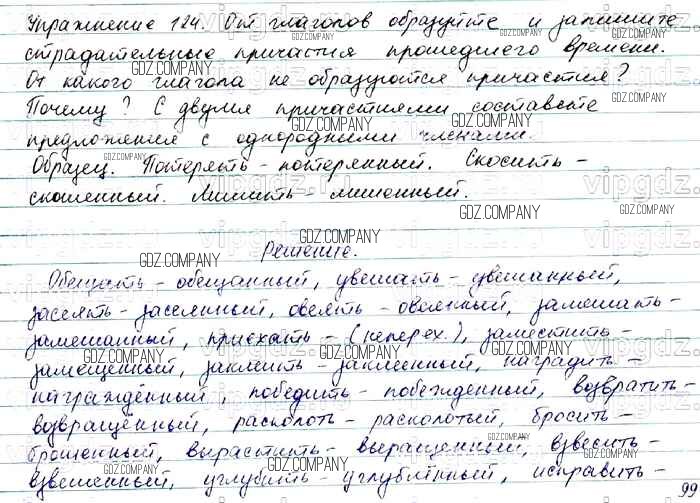 Упражнение 124. От глаголов образуйте и запишите
страдательные причастия прошедшего времени.
От какого глагола не образуются причастия?
Почему? С двумя причастиями составьте
предложения с однородными членами.
Образец. Потерять - потерянный. Скосить -
скошенный. Лишить - лишённый.
Решение.
Обещать - обещанный, увешать - увешанный,
засеять - засеянный, овеять - овеянный, замешать -
замешанный, приехать - (неперех.), заместить -
замещённый, заклеить - заклеенный, наградить -
награждённый, победить - побеждённый, возвратить -
возвращённый, расколоть - расколотый, бросить -
брошенный, вырастить - выращенный, взвесить -
взвешенный, углубить - углублённый, исправить -
99